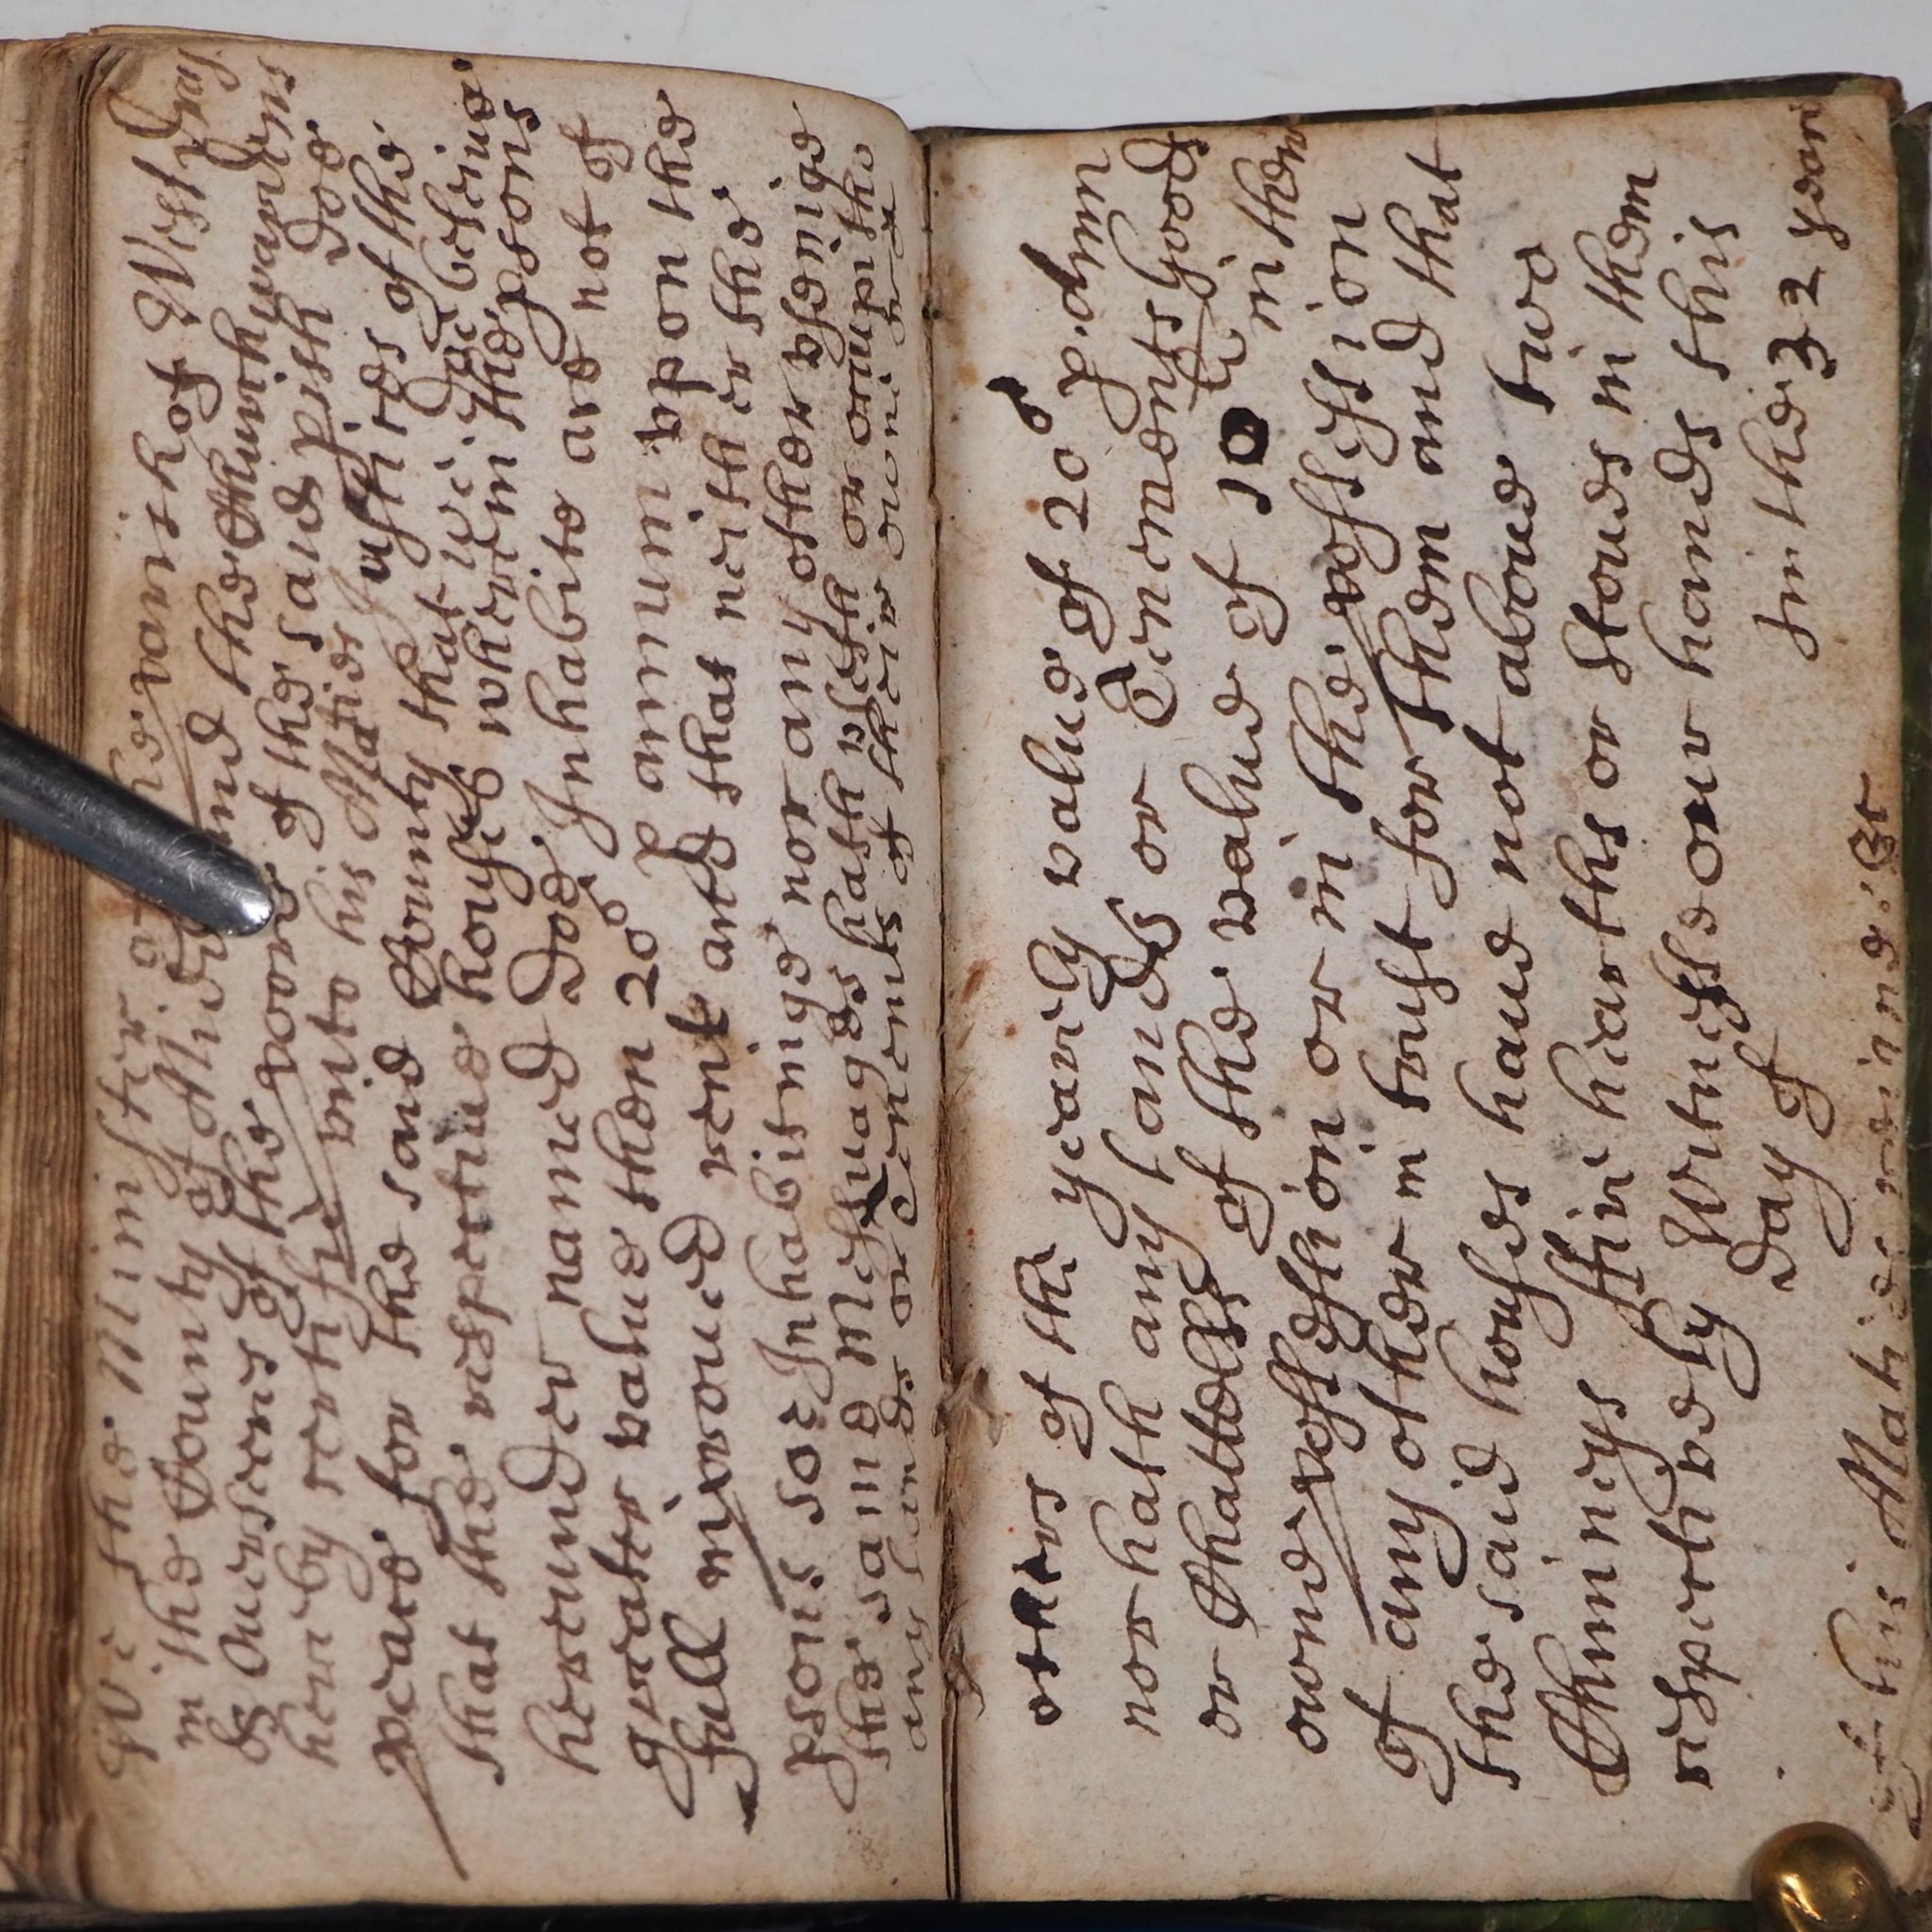 We the Minister of the parish of West Dra
in the County of Midd and the Churchwardens
& Overseers of the poore of the said pish doe
hereby certifie vnto his Maties Justices of the
peace for the said County that wee doe beleive
that the respective houses wherein the psons
hereunder named doe Inhabite are not of
greater value then 20s P annum vpon the
full improued rent and that neither the
psons soe Inhabitinge nor any other vseinge
the same Messuages hath vseth or occupieth
any lands or Tenements of their owne or
others of the yearly value of 20s p. Anm
nor hath any lands or Tenements Goods
or Chattells of the value of 10li in their
owne possession or in the possession
of any other in trust for them and that
the said houses haue not aboue two
Chimneys ffire hearths or Stoues in them
respectively Witnesse our hands this
day of In the 32 yeare
of his Maties reigne &c